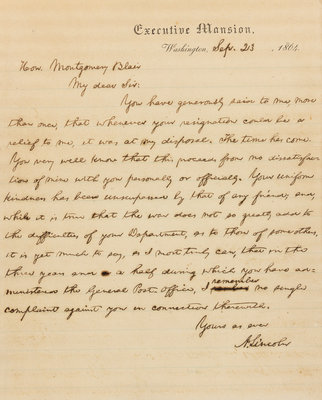 Executive Mansion,
Washington, Sep. 23, 1864.
Hon. Montgomery Blair
My dear Sir:
You have generously said to me, more
than once, that whenever your resignation could be a
relief to me, it was at my disposal. The time has come.
You very well know that this proceeds from no dissatisfac-
tion of mine with you personally or officially. Your uniform
kindness has been unsurpassed by that of any friend; and,
while it is true that the war does not so greatly add to
the difficulties of your Department, as to those of some others,
it is yet much to say, as I most truly can, that in the
three years and a half during which you have ad-
remember
ministered the General Post-Office, I no single
complaint against you in connection therewith.
Yours as ever
A. Lincoln